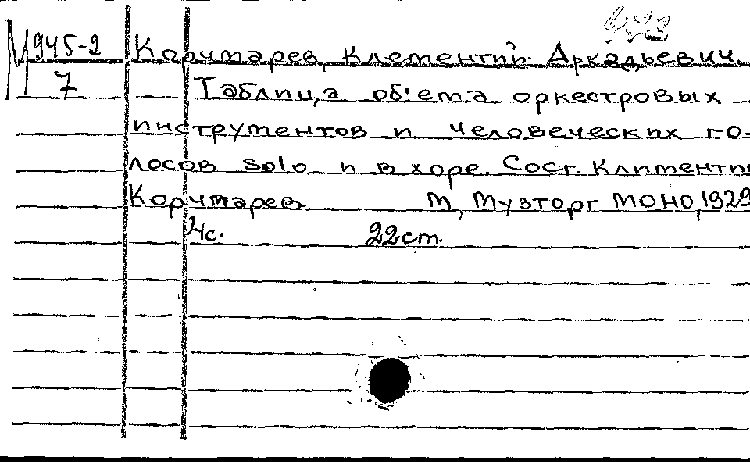 М 945-2 Корчмарев, Климентий Аркадьевич.
7 Таблица об'ема оркестровых
инструментов и человеческих го-
лосов solo и в хоре. Сост. Климентий
Корчмарев. М, Музторг МОНО, 1929
4с. 22cm